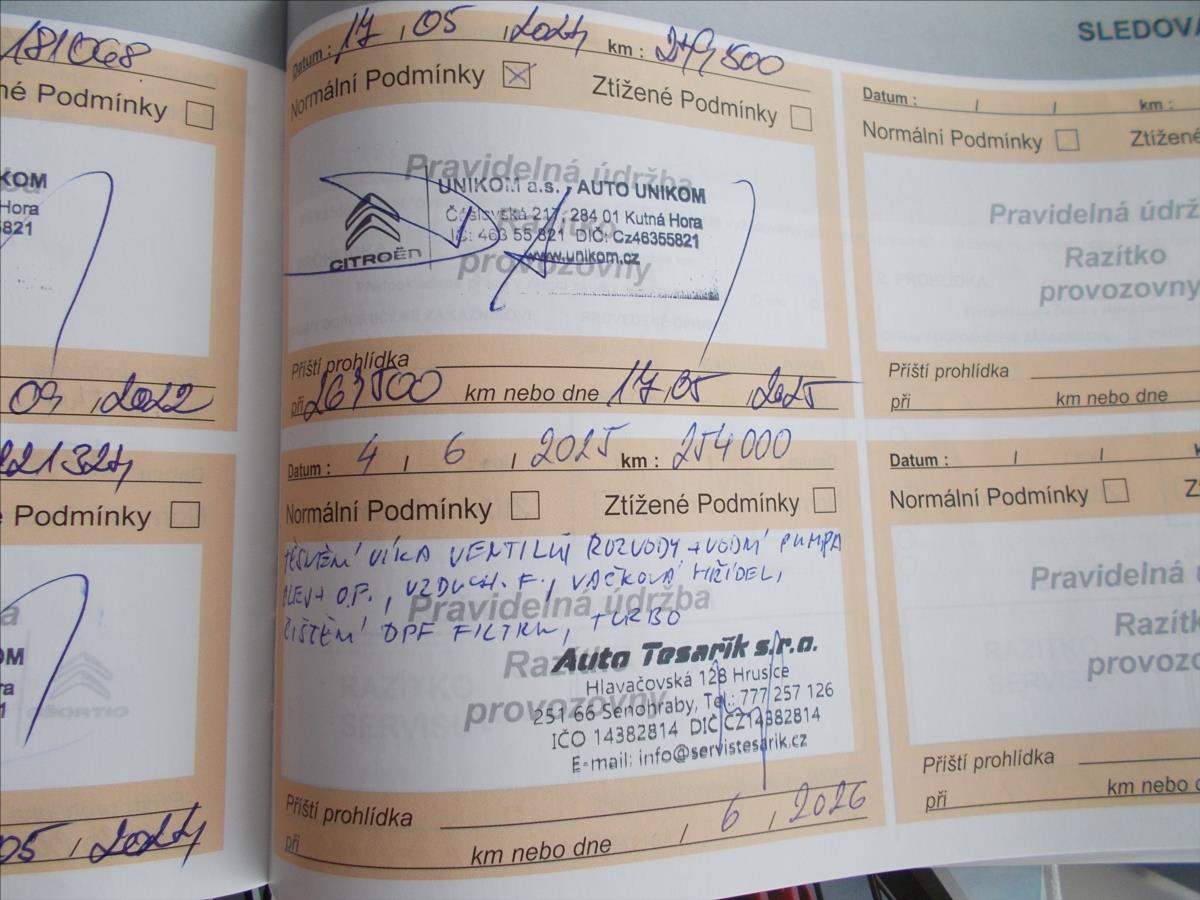 181068
né Podmínky
IKOM
Hora
5821
09 , 2022
221324
é Podmínky
OM
ra
1
05 , 2024
Datum : 17 . 05 , 2024 km : 249500
Normální Podmínky Ztížené Podmínky
Pravidelná údržba
Razítko
provozovny
UNIKOM a.s., AUTO UNIKOM
Čáslavská 217, 284 01 Kutná Hora
IČ: 463 55 821 DIČ: Cz46355821
www.unikom.cz
CITROËN
Příští prohlídka
při 269500 km nebo dne 17 . 05 , 2025
Datum : 4 , 6 , 2025 km : 254000
Normální Podmínky Ztížené Podmínky
TĚSNĚNÍ VÍKA VENTILŮ, ROZVODY + VODNÍ PUMPA
OLEJ + O.F., VZDUCH. F., VAČKOVÁ HŘÍDEL,
ČIŠTĚNÍ DPF FILTRU, TURBO
Pravidelná údržba
Razítko
provozovny
Auto Tesařík s.r.o.
Hlavačovská 128 Hrusice
251 66 Senohraby, Tel.: 777 257 126
IČO 14382814 DIČ CZ14382814
E-mail: info@servistesarik.cz
Příští prohlídka
při km nebo dne , 6 , 2026
SLEDOVÁ
Datum : / / km :
Normální Podmínky Ztížené
Pravidelná údrž
Razítko
provozovny
Příští prohlídka
při km nebo dne
Datum : / /
Normální Podmínky Z
Pravidelná údrž
Razítk
provozov
Příští prohlídka
při km nebo d